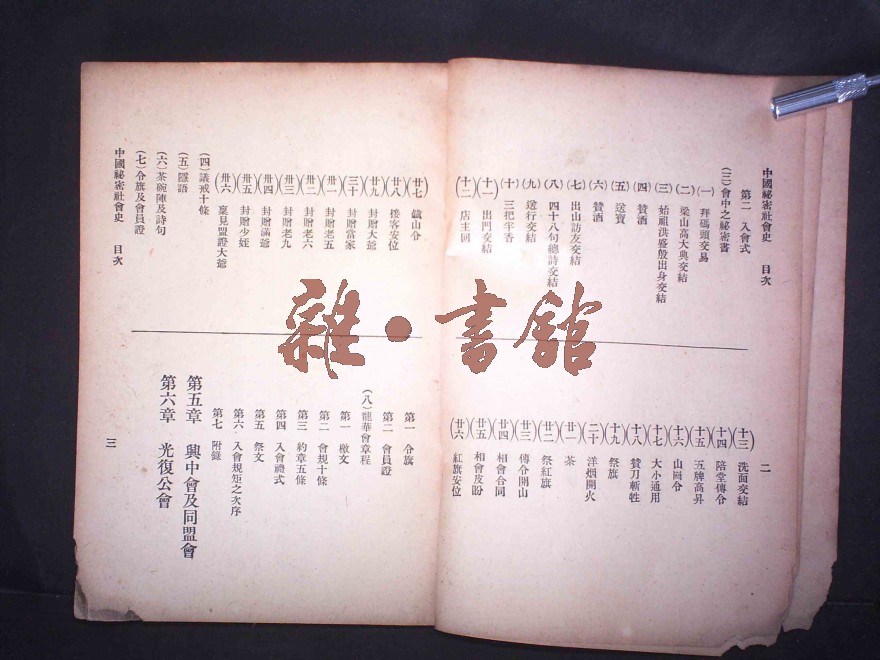 中國祕密社會史 目次
第二 入會式
(三)會中之祕密書
(一) 拜碼頭交易
(二) 梁山高大典交結
(三) 始祖洪盛殷出身交結
(四) 贊酒
(五) 送寶
(六) 贊酒
(七) 出山訪友交結
(八) 四十八句總詩交結
(九) 送行交結
(十) 三把半香
(十一) 出門交結
(十二) 店主回
(十三) 洗面交結
(十四) 陪堂傳令
(十五) 五牌高昇
(十六) 山崗令
(十七) 大小通用
(十八) 贊刀斬牲
(十九) 祭旗
(二十) 洋烟開火
(廿一) 茶
(廿二) 祭紅旗
(廿三) 傳令開山
(廿四) 相會合同
(廿五) 相會皮盼
(廿六) 紅旗安位
二
(廿七) 鎮山令
(廿八) 接客安位
(廿九) 封贈大爺
(三十) 封贈當家
(卅一) 封贈老五
(卅二) 封贈老六
(卅三) 封贈老九
(卅四) 封贈滿爺
(卅五) 封贈少姪
(卅六) 稟見盟證大爺
(四) 議戒十條
(五) 隱語
(六) 茶碗陣及詩句
(七) 令旗及會員證
中國祕密社會史 目次
第一 令旗
第二 會員證
(八) 龍華會章程
第一 檄文
第二 會規十條
第三 約章五條
第四 入會禮式
第五 祭文
第六 入會規矩之次序
第七 附錄
第五章 興中會及同盟會
第六章 光復公會
三
雜·書館